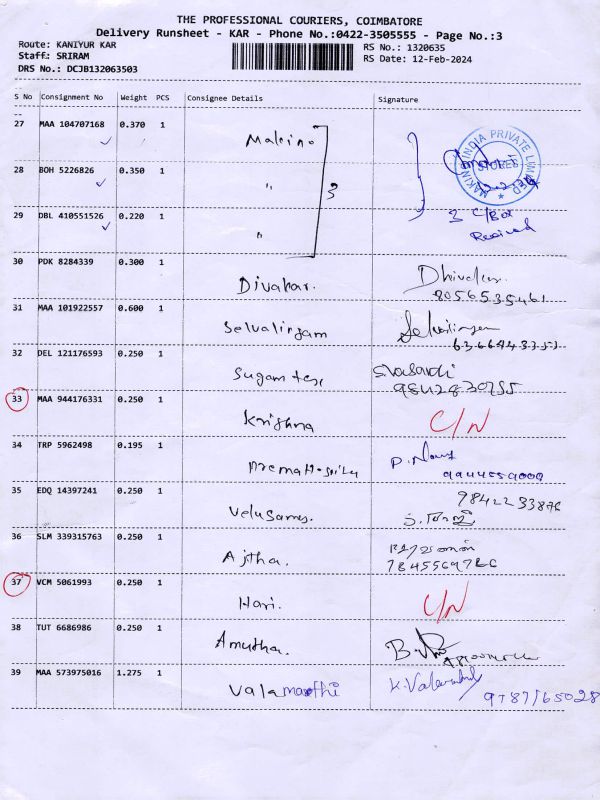 THE PROFESSIONAL COURIERS, COIMBATORE
Delivery Runsheet - KAR - Phone No.:0422-3505555 - Page No.:3
Route: KANIYUR KAR
RS No.: 1320635
Staff: SRIRAM
RS Date: 12-Feb-2024
DRS No.: DCJB132063503
S No Consignment No Weight PCS Consignee Details Signature
27 MAA 104707168 0.370 1 Makino
28 BOH 5226826 0.350 1 "
3
29 DBL 410551526 0.220 1 "
MAKINO INDIA PRIVATE LIMITED
STORES
3 C/Box
Received
30 PDK 8284339 0.300 1 Divakar.
8056535461
31 MAA 101922557 0.600 1 Selvalingam
6366443351
32 DEL 121176593 0.250 1
9842830755
33 MAA 944176331 0.250 1 Krishna C/N
34 TRP 5962498 0.195 1
9944559009
35 EDQ 14397241 0.250 1 Velusamy. 9842233876
36 SLM 339315763 0.250 1 Ajtha.
37 VCM 5061993 0.250 1 Hari. C/N
38 TUT 6686986 0.250 1 Amutha.
39 MAA 573975016 1.275 1 Valamathi
9787765028